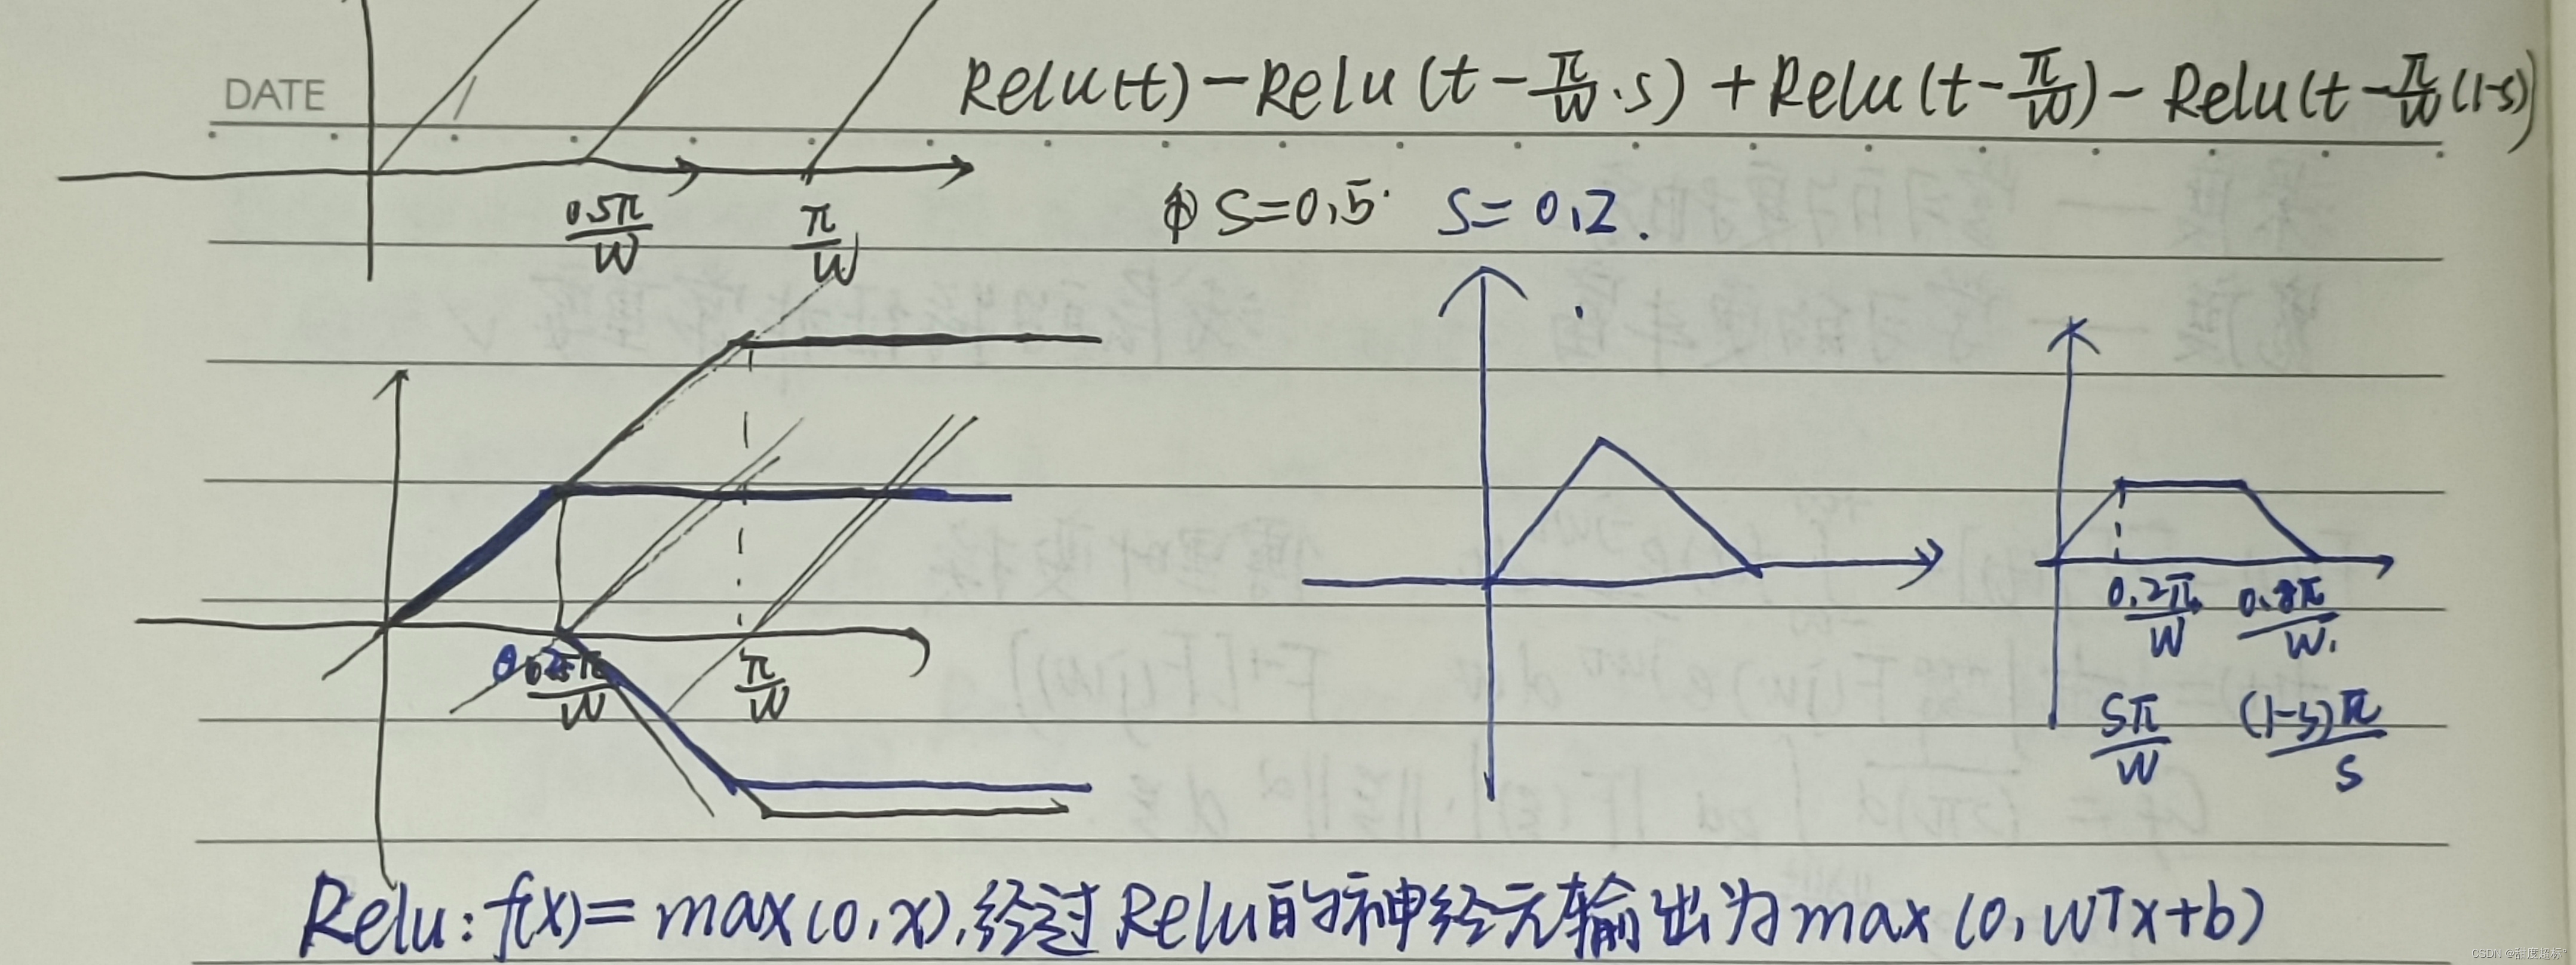 DATE
Relu(t)-Relu(t-π/W·s)+Relu(t-π/W)-Relu(t-π/W(1-s))
0.5π/W π/W
① S=0.5 S=0.2.
π/W
0.2π/W 0.8π/W.
Sπ/W (1-s)π/S
Relu: f(x)=max(0,x),经过Relu的神经元输出为max(0,WTx+b)
CSDN @甜度超标